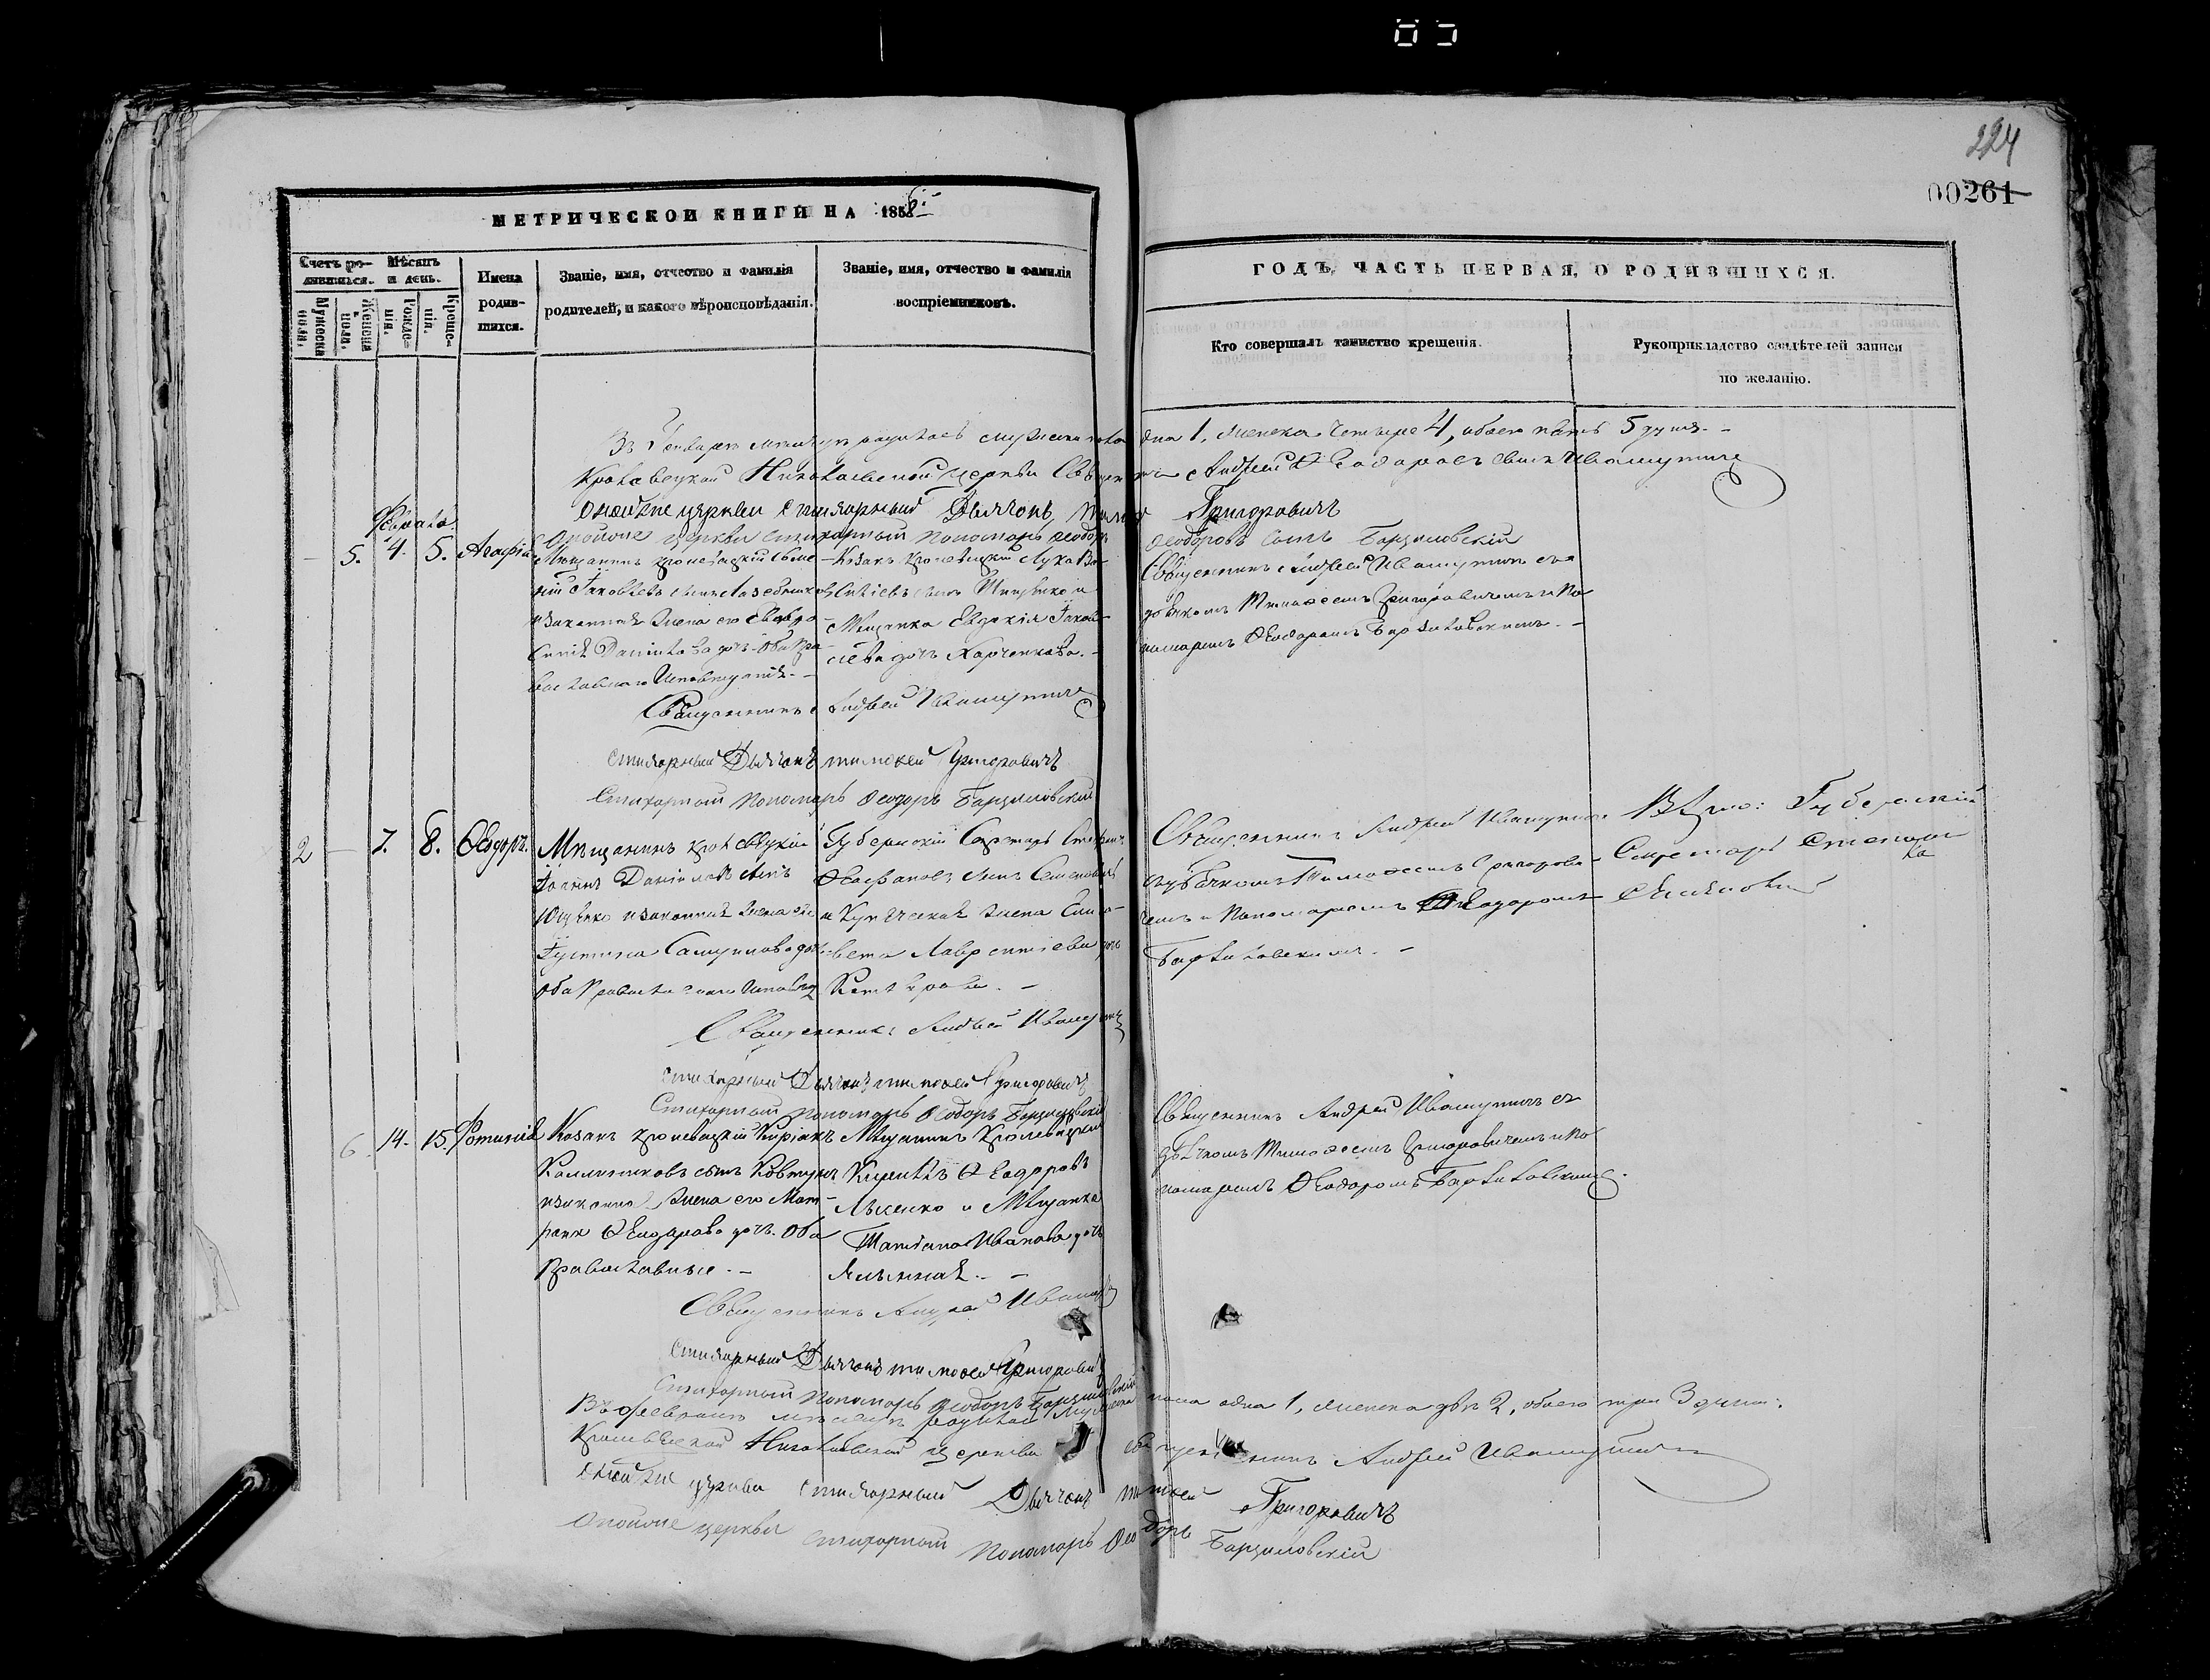 224
00261
МЕТРИЧЕСКОЙ КНИГИ НА 1858
ГОДЪ, ЧАСТЬ ПЕРВАЯ, О РОДИВШИХСЯ.
Счетъ ро-
дившихся.
Мужеска
пола.
Женска
пола.
Мѣсяцъ
и день.
Рожде-
нія.
Креще-
нія.
Имена
родив-
шихся.
Званіе, имя, отчество и фамилія
родителей, и какого вѣроисповѣданія.
Званіе, имя, отчество и фамилія
воспріемниковъ.
Кто совершалъ таинство крещенія.
Рукоприкладство свидѣтелей записи
по желанію.
Въ Январѣ мѣсяцѣ родилось мужеска пола одна 1, женска четыре 4, обоего пять 5 душъ.
Кролевецкой Николаевской церкви Священникъ Андрей Феодоровъ сынъ Ивашутичъ
Оной же церкви стихарный Дьячокъ Тимофей Григоровичъ
Оной же церкви стихарный Пономарь Феодоръ Феодоровъ сынъ Барзиловскій
Февраль
5. 4. 5. Агафія
Мѣщанинъ кролевецкій
Іаковлевъ сынъ
и законная жена его
Данилова дочь оба Пра-
вославнаго Исповѣданія.
Козакъ кролевецкій Лука Ва-
силіевъ сынъ
Мѣщанка Евдокія Іаков-
лева дочь Харченкова.
Священникъ Андрей Ивашутичъ съ
дьячкомъ Тимофеемъ Григоровичемъ и По-
номаремъ Феодоромъ Барзиловскимъ.
Священникъ Андрей Ивашутичъ
Стихарный Дьячокъ Тимофей Григоровичъ
Стихарный Пономарь Феодоръ Барзиловскій
2 7. 8. Феодоръ.
Мѣщанинъ кролевецкій
Іоаннъ Даніиловъ сынъ
Ющенко и законная жена его
Іустина Самуилова дочь
оба Православнаго Исповѣд
Губернскій Секретарь Стефанъ
сынъ
и Купеческая жена Елиса-
вета Лаврентіева дочь
Священникъ Андрей Ивашутичъ
съ дьячкомъ Тимофеемъ Григорови-
чемъ и Пономаремъ Феодоромъ
Барзиловскимъ.
Губернскій
Секретарь Степанъ
Священникъ Андрей Ивашутичъ
Стихарный Дьячокъ Тимофей Григоровичъ
Стихарный Пономарь Феодоръ Барзиловскій
6. 14. 15. Фотинія
Козакъ кролевецкій Киріакъ
Каллиниковъ сынъ Ковтунъ
и законная жена его Мат-
рона Феодорова дочь. Оба
Православные.
Мѣщанинъ Кролевецкій
Феодоровъ
Лысенко и Мѣщанка
Татіана Иванова дочь
Священникъ Андрей Ивашутичъ съ
дьячкомъ Тимофеемъ Григоровичемъ и По-
номаремъ Феодоромъ Барзиловскимъ.
Священникъ Андрей Ивашутичъ
Стихарный Дьячокъ Тимофей Григоровичъ
Стихарный Пономарь Феодоръ Барзиловскій
Въ Февралѣ мѣсяцѣ родилось мужеска пола одна 1, женска двѣ 2, обоего три 3 души.
Кролевецкой Николаевской церкви Священникъ Андрей Ивашутичъ
Оной же церкви стихарный Дьячокъ Тимофей Григоровичъ
Оной же церкви стихарный Пономарь Феодоръ Барзиловскій